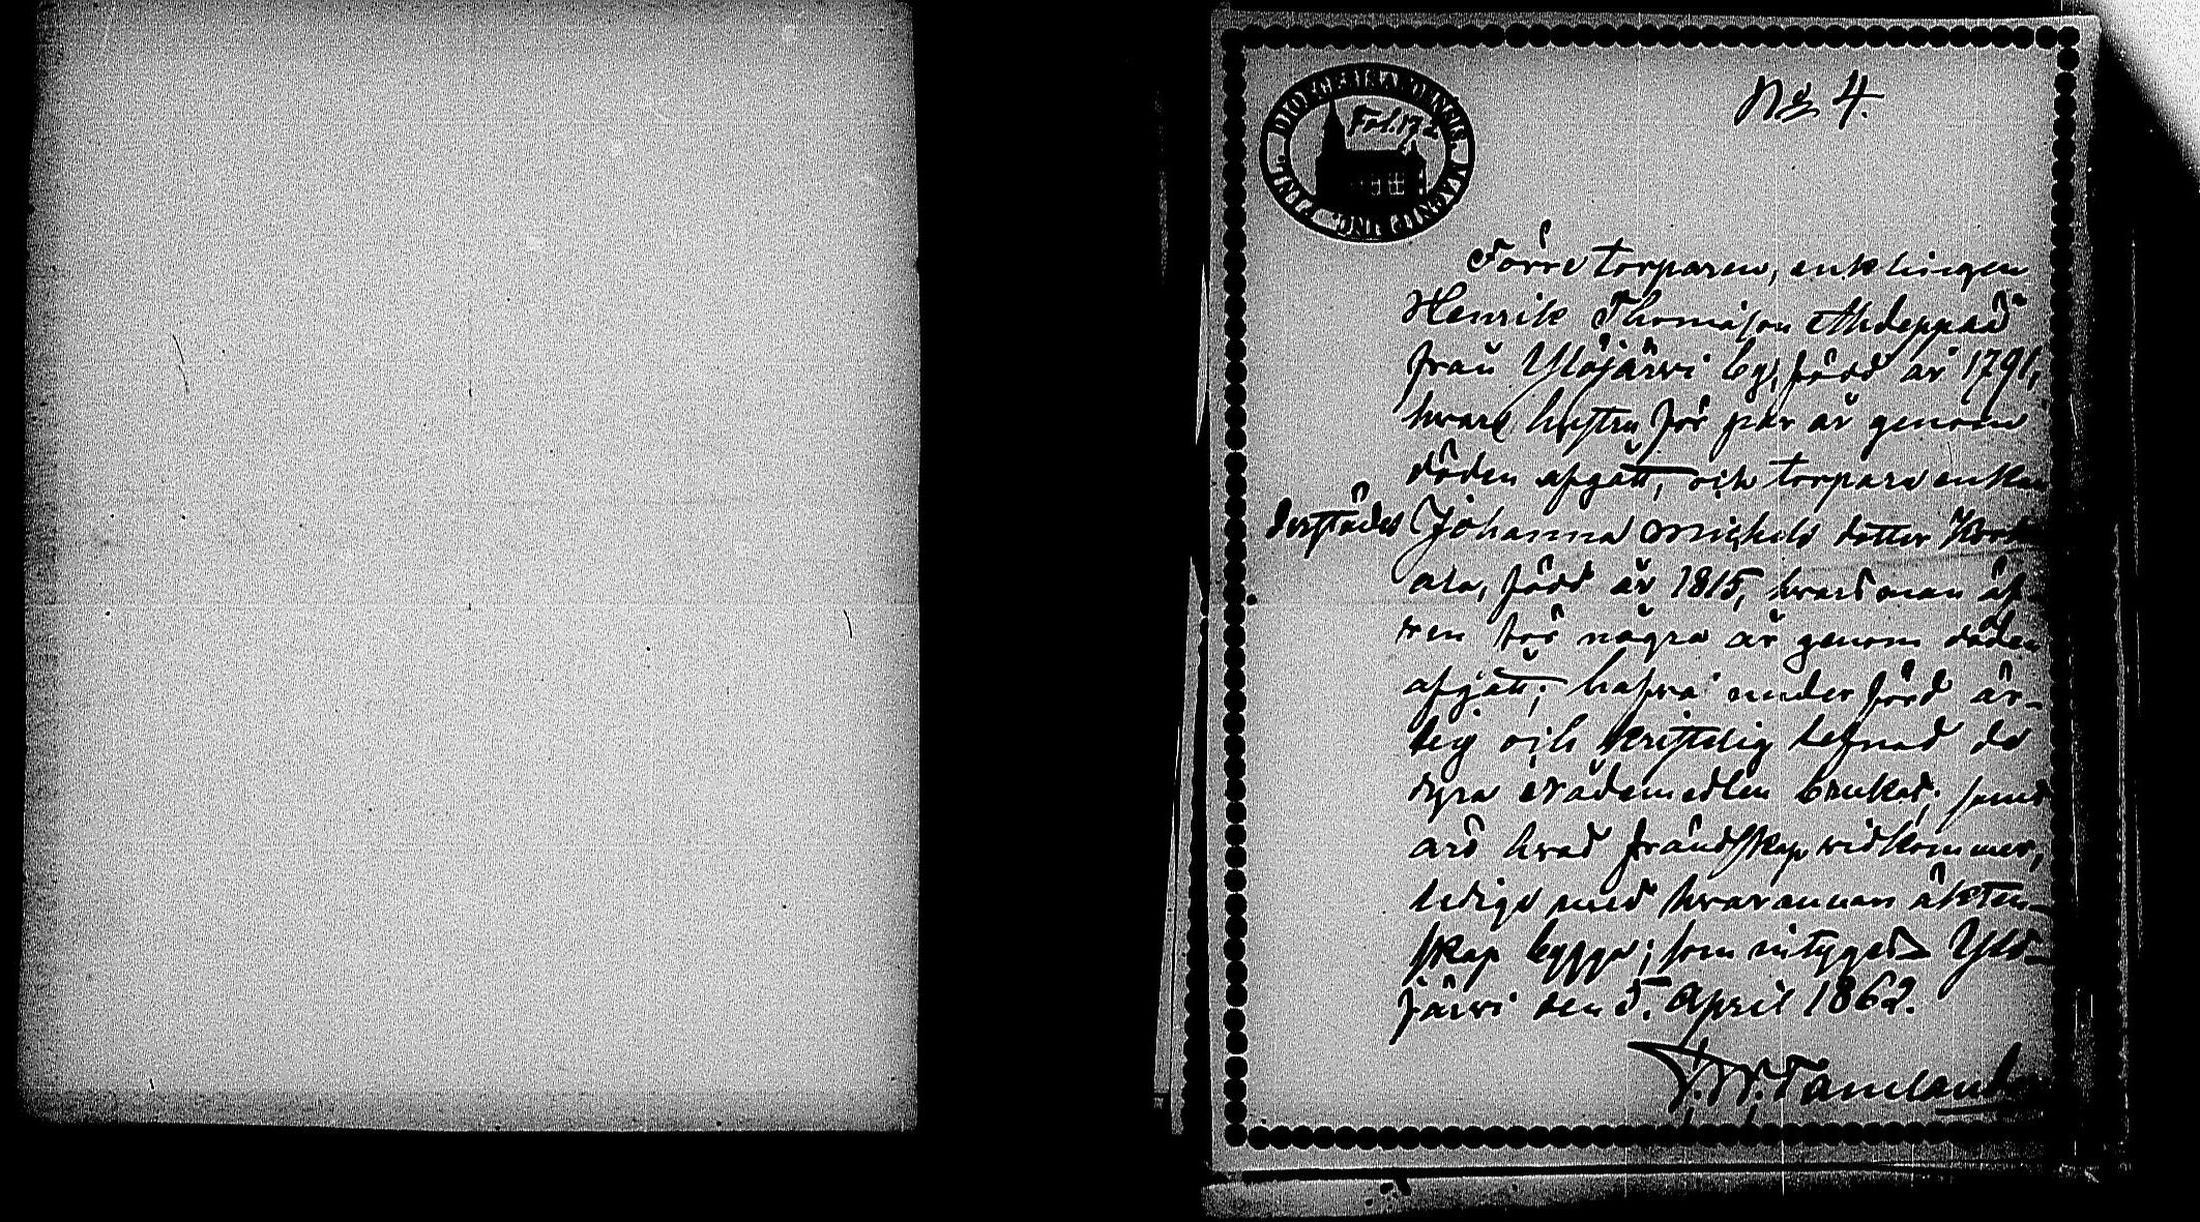 No 4.
Fol. 172
Förre torparen, enklingen
Henrik Thomasson
från Ylöjärvi by, född år 1791,
hvars hustru för par år genom
döden afgått, och torpare enkan
derstädes Johanna Michels dotter
ala, född år 1815, hvars man äf-
ven för några år genom döden
afgått; hafva under förd är-
lig och kristelig lefnad de
dyra nådemedlen brukat; samt
äro hvad frändskap vidkommer,
ledige med hvarannan äkten-
skap bygga; som intygas Ylö-
järvi den 5. April 1862.